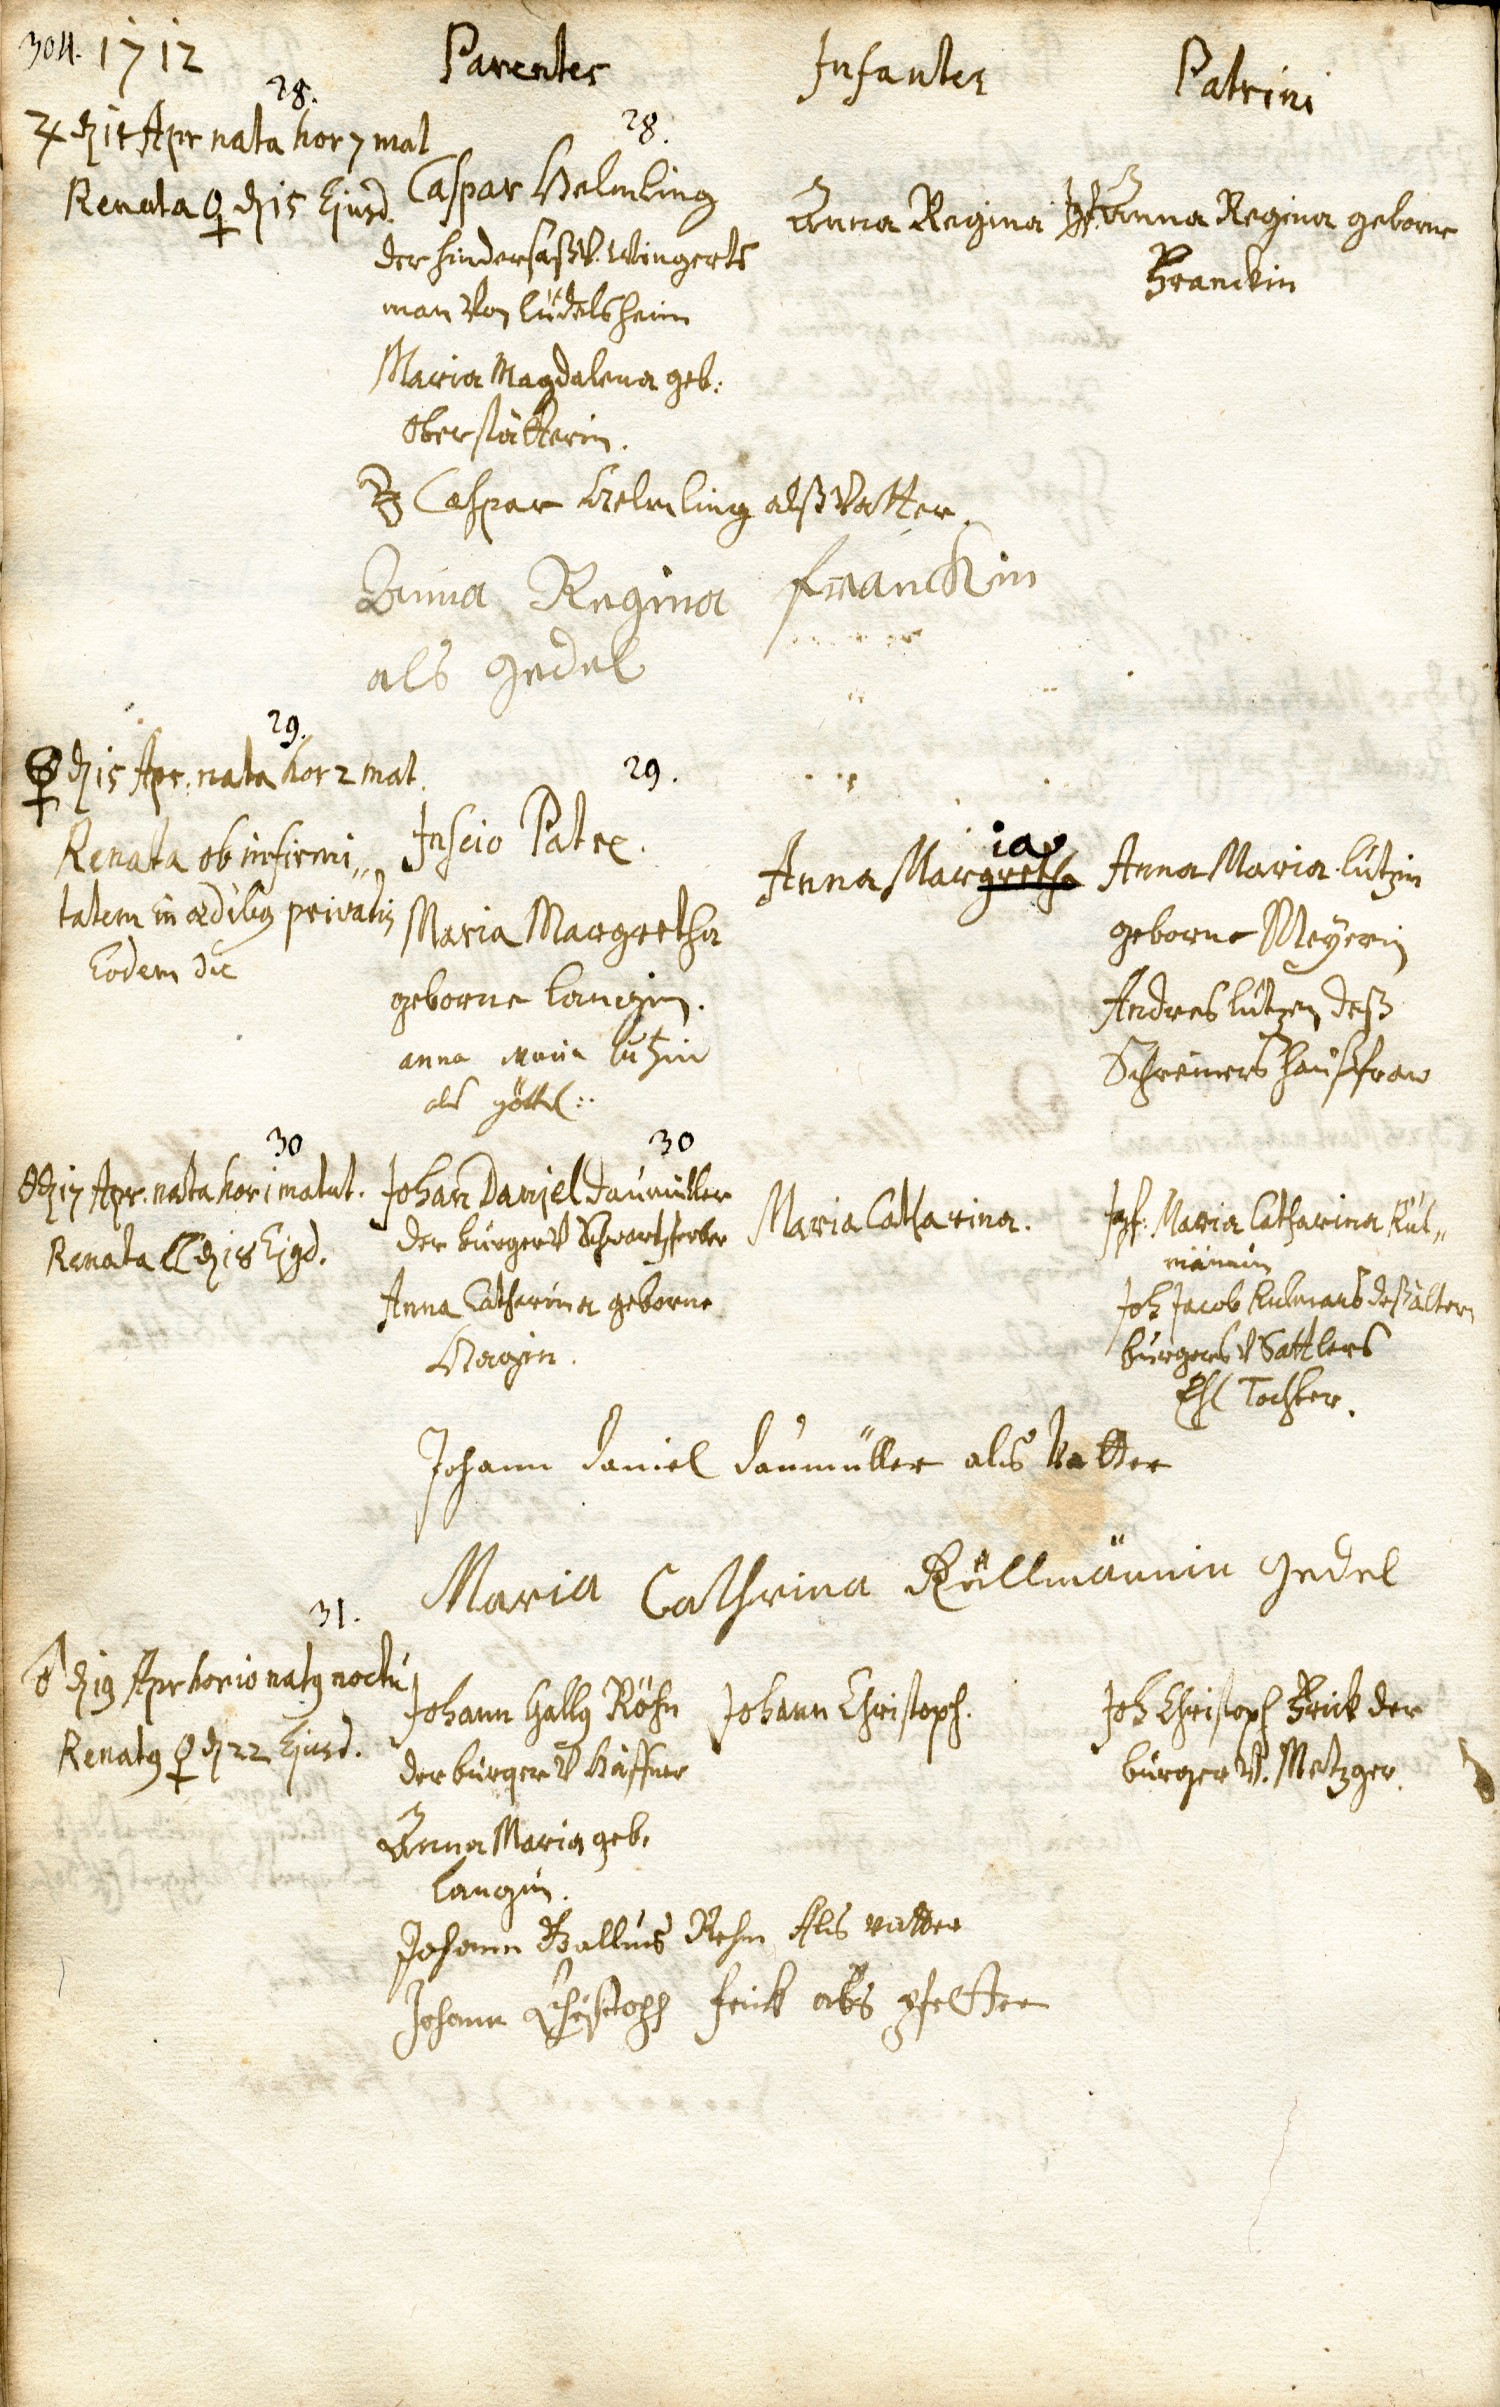 304. 1712
Parentes
Infantes
Patrini
28.
♃ d 14 Apr nata hor 7 mat
Renata ♀ d 15 Ejusd.
28.
Caspar Helmling
der hindersaß V. Wingerts
man von Lüdelsheim
Maria Magdalena geb:
Oberstätterin.
Anna Regina
Jgf. Anna Regina geborne
Franckin
Caspar Helmling alß Vatter.
Anna Regina franckin
als gedel
29.
♀ d 15 Apr. nata hor 2 mat.
Renata ob infirmi„
tatem in ædibg privatis
Eodem die
29.
Inscio Patre.
Maria Margretha
geborne Langin.
anna maria Lutzin
als göttel:
ia
Anna Margretha
Anna Maria Lutzin
geborne Meyerin
Andres Lutzen deß
Schreiners haußfraw
30
☉ d 17 Apr. nata hor 1 matut.
Renata ☾ d 18 Ejgd.
30
Johan Daniel Daumüller
der burger V Schwartzferber
Anna Catharina geborne
Hegin.
Maria Catharina.
Jgf: Maria Catharina Kül„
männin
Joh Jacob Kulmans deß ältern
burgers V Sattlers
Ehl Tochter.
Johann Daniel Daumüller als Vatter
Maria Cathrina Küllmännin gedel
31.
♂ d 19 Apr hor 10 natg noctu
Renatg ♀ d 22 Ejusd.
Johann Gallg Röhn
der burger V Häffner
Anna Maria geb.
Langin.
Johann Christoph.
Joh Christoph Frick der
burger V. Metzger.
Johann Gallus Rehn Als vatter
Johann Christoph frick als pfetter